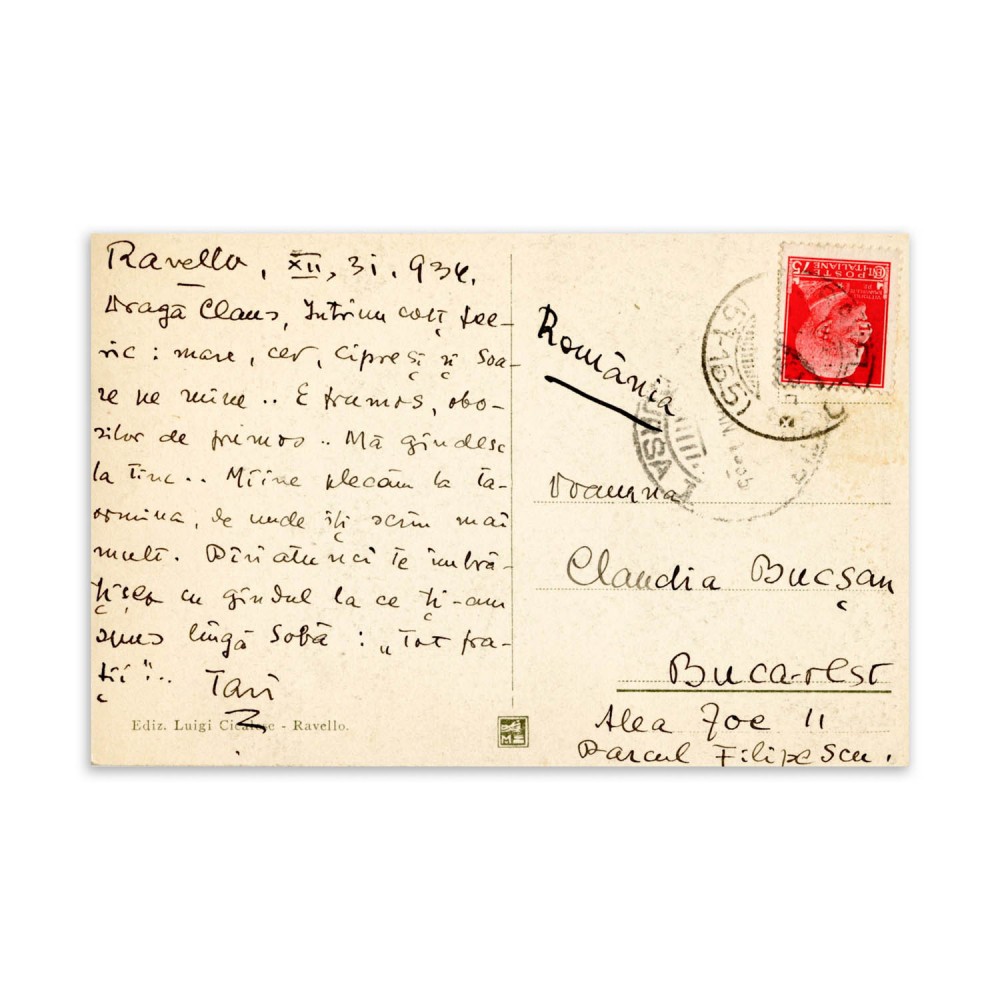 Ravello, XII, 31. 934.
Dragă Claus, Într'un colț fee-
ric: mare, cer, cipreși și Soa-
re ne mine.. E frumos, obo-
sitor de frumos.. Mă gîndesc
la tine.. Mîine plecăm la Ta-
ormina, de unde îți scriu mai
mult. Pîn'atunci te îmbră-
țișez cu gîndul la ce ți-am
spus lîngă Sobă: „Tot fra-
ții"..
Ediz. Luigi - Ravello.
România
POSTE ITALIANE
75
(57-165)
BURSA
Doamna
Claudia Bucșan
Bucarest
Alea Zoe 11
Parcul Filipescu.